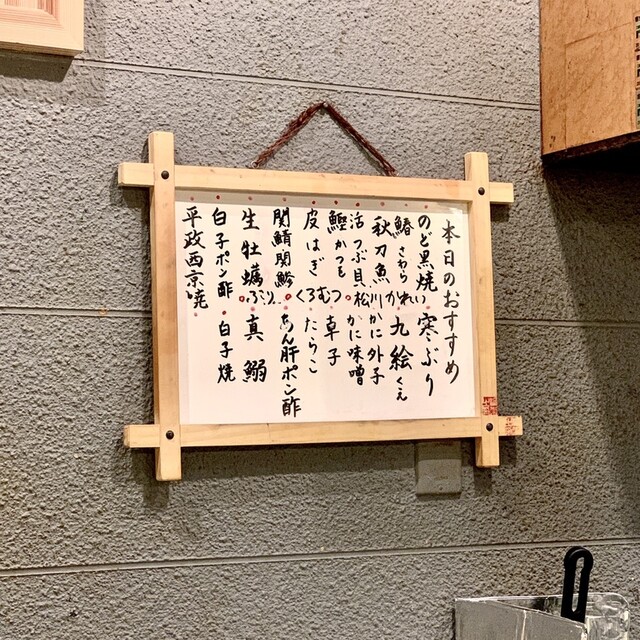 本日のおすすめ
のど黒焼 寒ぶり
鰆 さわら かれい 九絵 くえ
秋刀魚 川かに外子
活つぶ貝 松かに味噌
鰹 かつを 草子
皮はぎ くろむつ たらこ
関鯖 関鯵 あん肝ポン酢
生牡蠣 真鰯
白子ポン酢 白子焼
平政西京焼